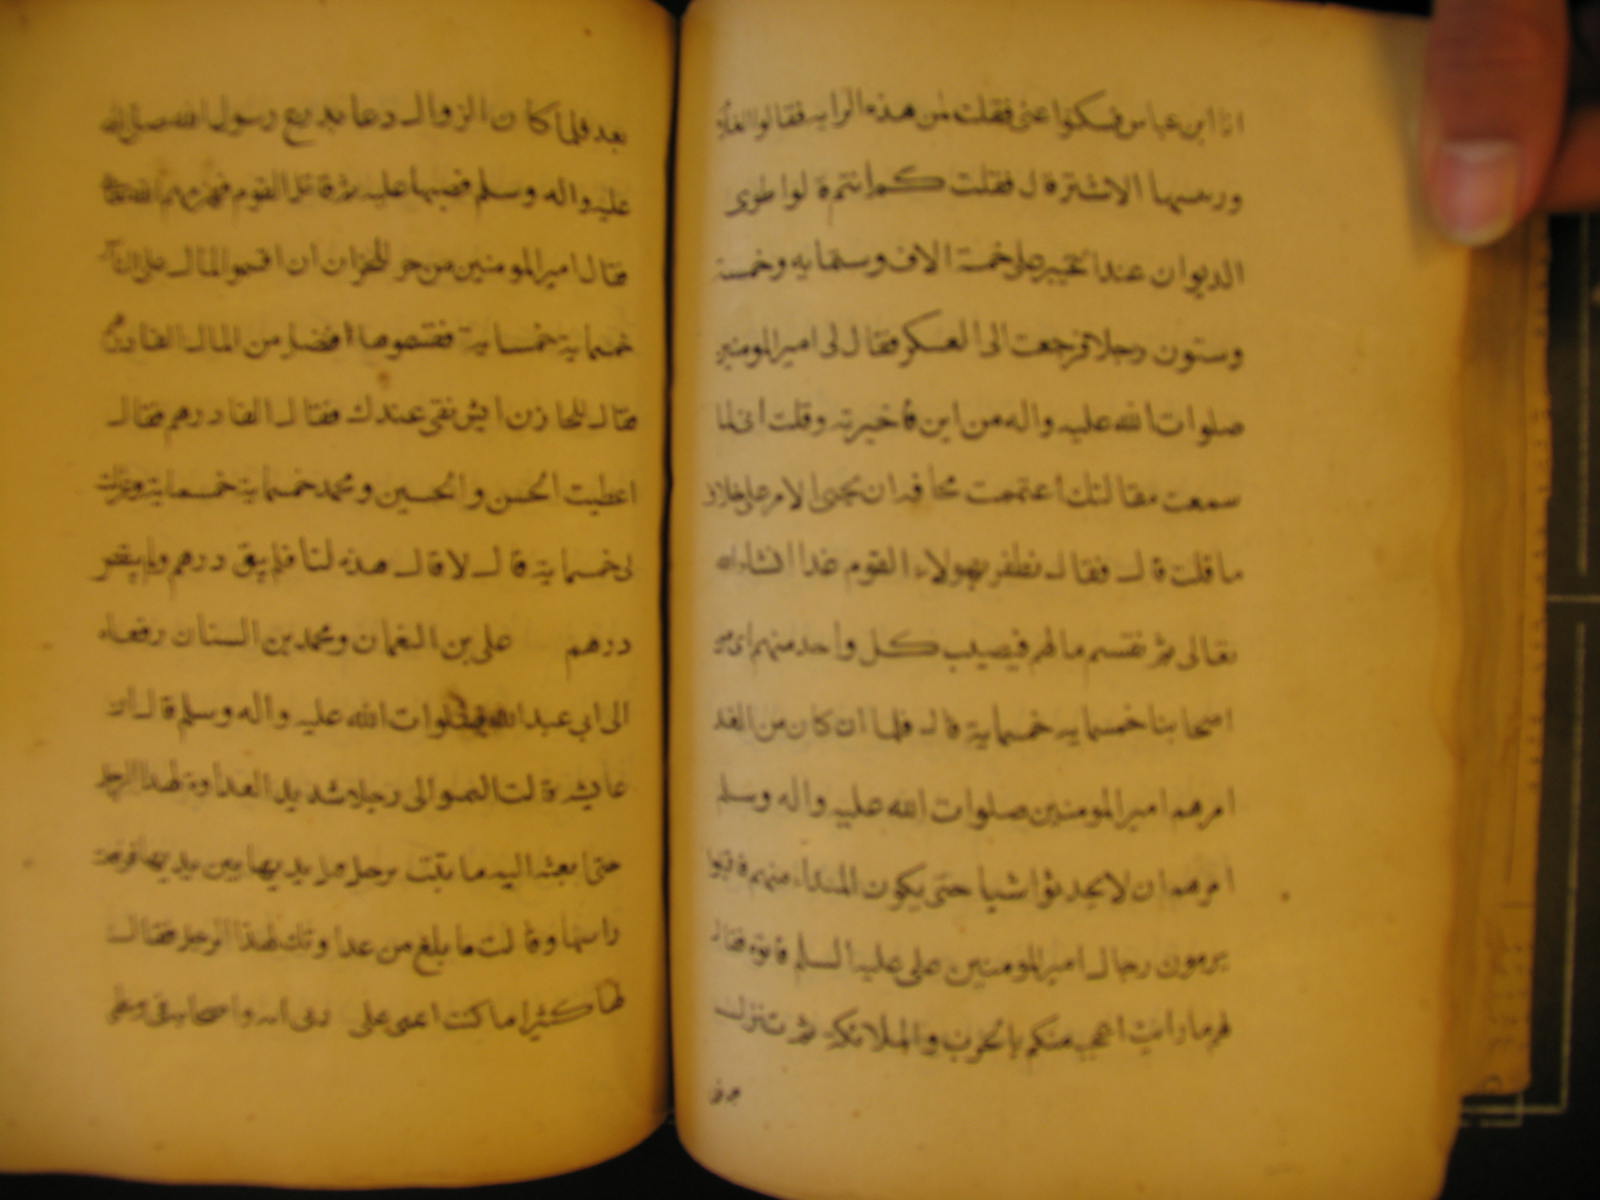 انا ابن عباس فسكتوا عنى فقلت لمن هذه الرايه فقالوا
ورييسها الاشتر قال فقلت كم انتم قالوا طوى
الديوان عند الجسر على خمسة الاف وستمايه وخمسة
وستون رجلا فرجعت الى العسكر فقال لى امير المومنين
صلوات الله عليه واله من اين فاخبرته وقلت انى لما
سمعت مقالتك اغتممت مخافه ان يجى الامر على خلاف
ما قلت قال فقال نظفر بهولاء القوم غدا انشاء الله
تعالى ثم نقسم مالهم فيصيب كل واحد منهم
اصحابنا خمسمايه خمسماية قال فلما ان كان من الغد
امرهم امير المومنين صلوات الله عليه واله وسلم
امرهم ان لا يحدثوا شيا حتى يكون المبتداء منهم
يرمون رجال امير المومنين على عليه السلم فاتوه فقال
لهم ما رايت اعجب منكم بالحرب والملائكة ثم تنزل
بعد فلما كان الزوال دعا بدرع رسول الله صلى الله
عليه واله وسلم فصبها عليه ثم قاتل القوم فهزمهم الله
فقال امير المومنين من حر للخزان ان اقسموا المال على
خمسماية خمسماية فقسموها افضل من المال الفا
فقال للخازن ايش بقى عندك فقال الفا درهم فقال
اعطيت الحسن والحسين ومحمد خمسماية خمسماية وعزلت
لى خمسماية قال لا قال هذه لنا فلم يبق درهم ولم ينقص
درهم على بن النعمان ومحمد بن السنان رفعاه
الى ابى عبد الله صلوات الله عليه واله وسلم قال ان
عايشة قالت التمسوا لى رجلا شديد العداوة لهذا الرجل
حتى ابعثه اليه ما بين يديها فرفعت
راسها وقالت ما بلغ من عداوتك لهذا الرجل فقال
لها كثيرا ما كنت اتمنى على ربى انه واصحابه فى وسطى